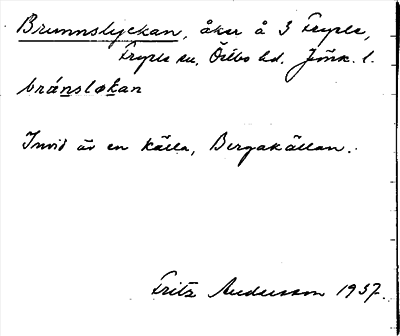 Brunnslyckan, åker å 3 Fryele,
Fryele sn, Östbo hd. Jönk. l.
bránsløkan
Invid är en källa, Bergakällan.
Fritz Andersson 1937.